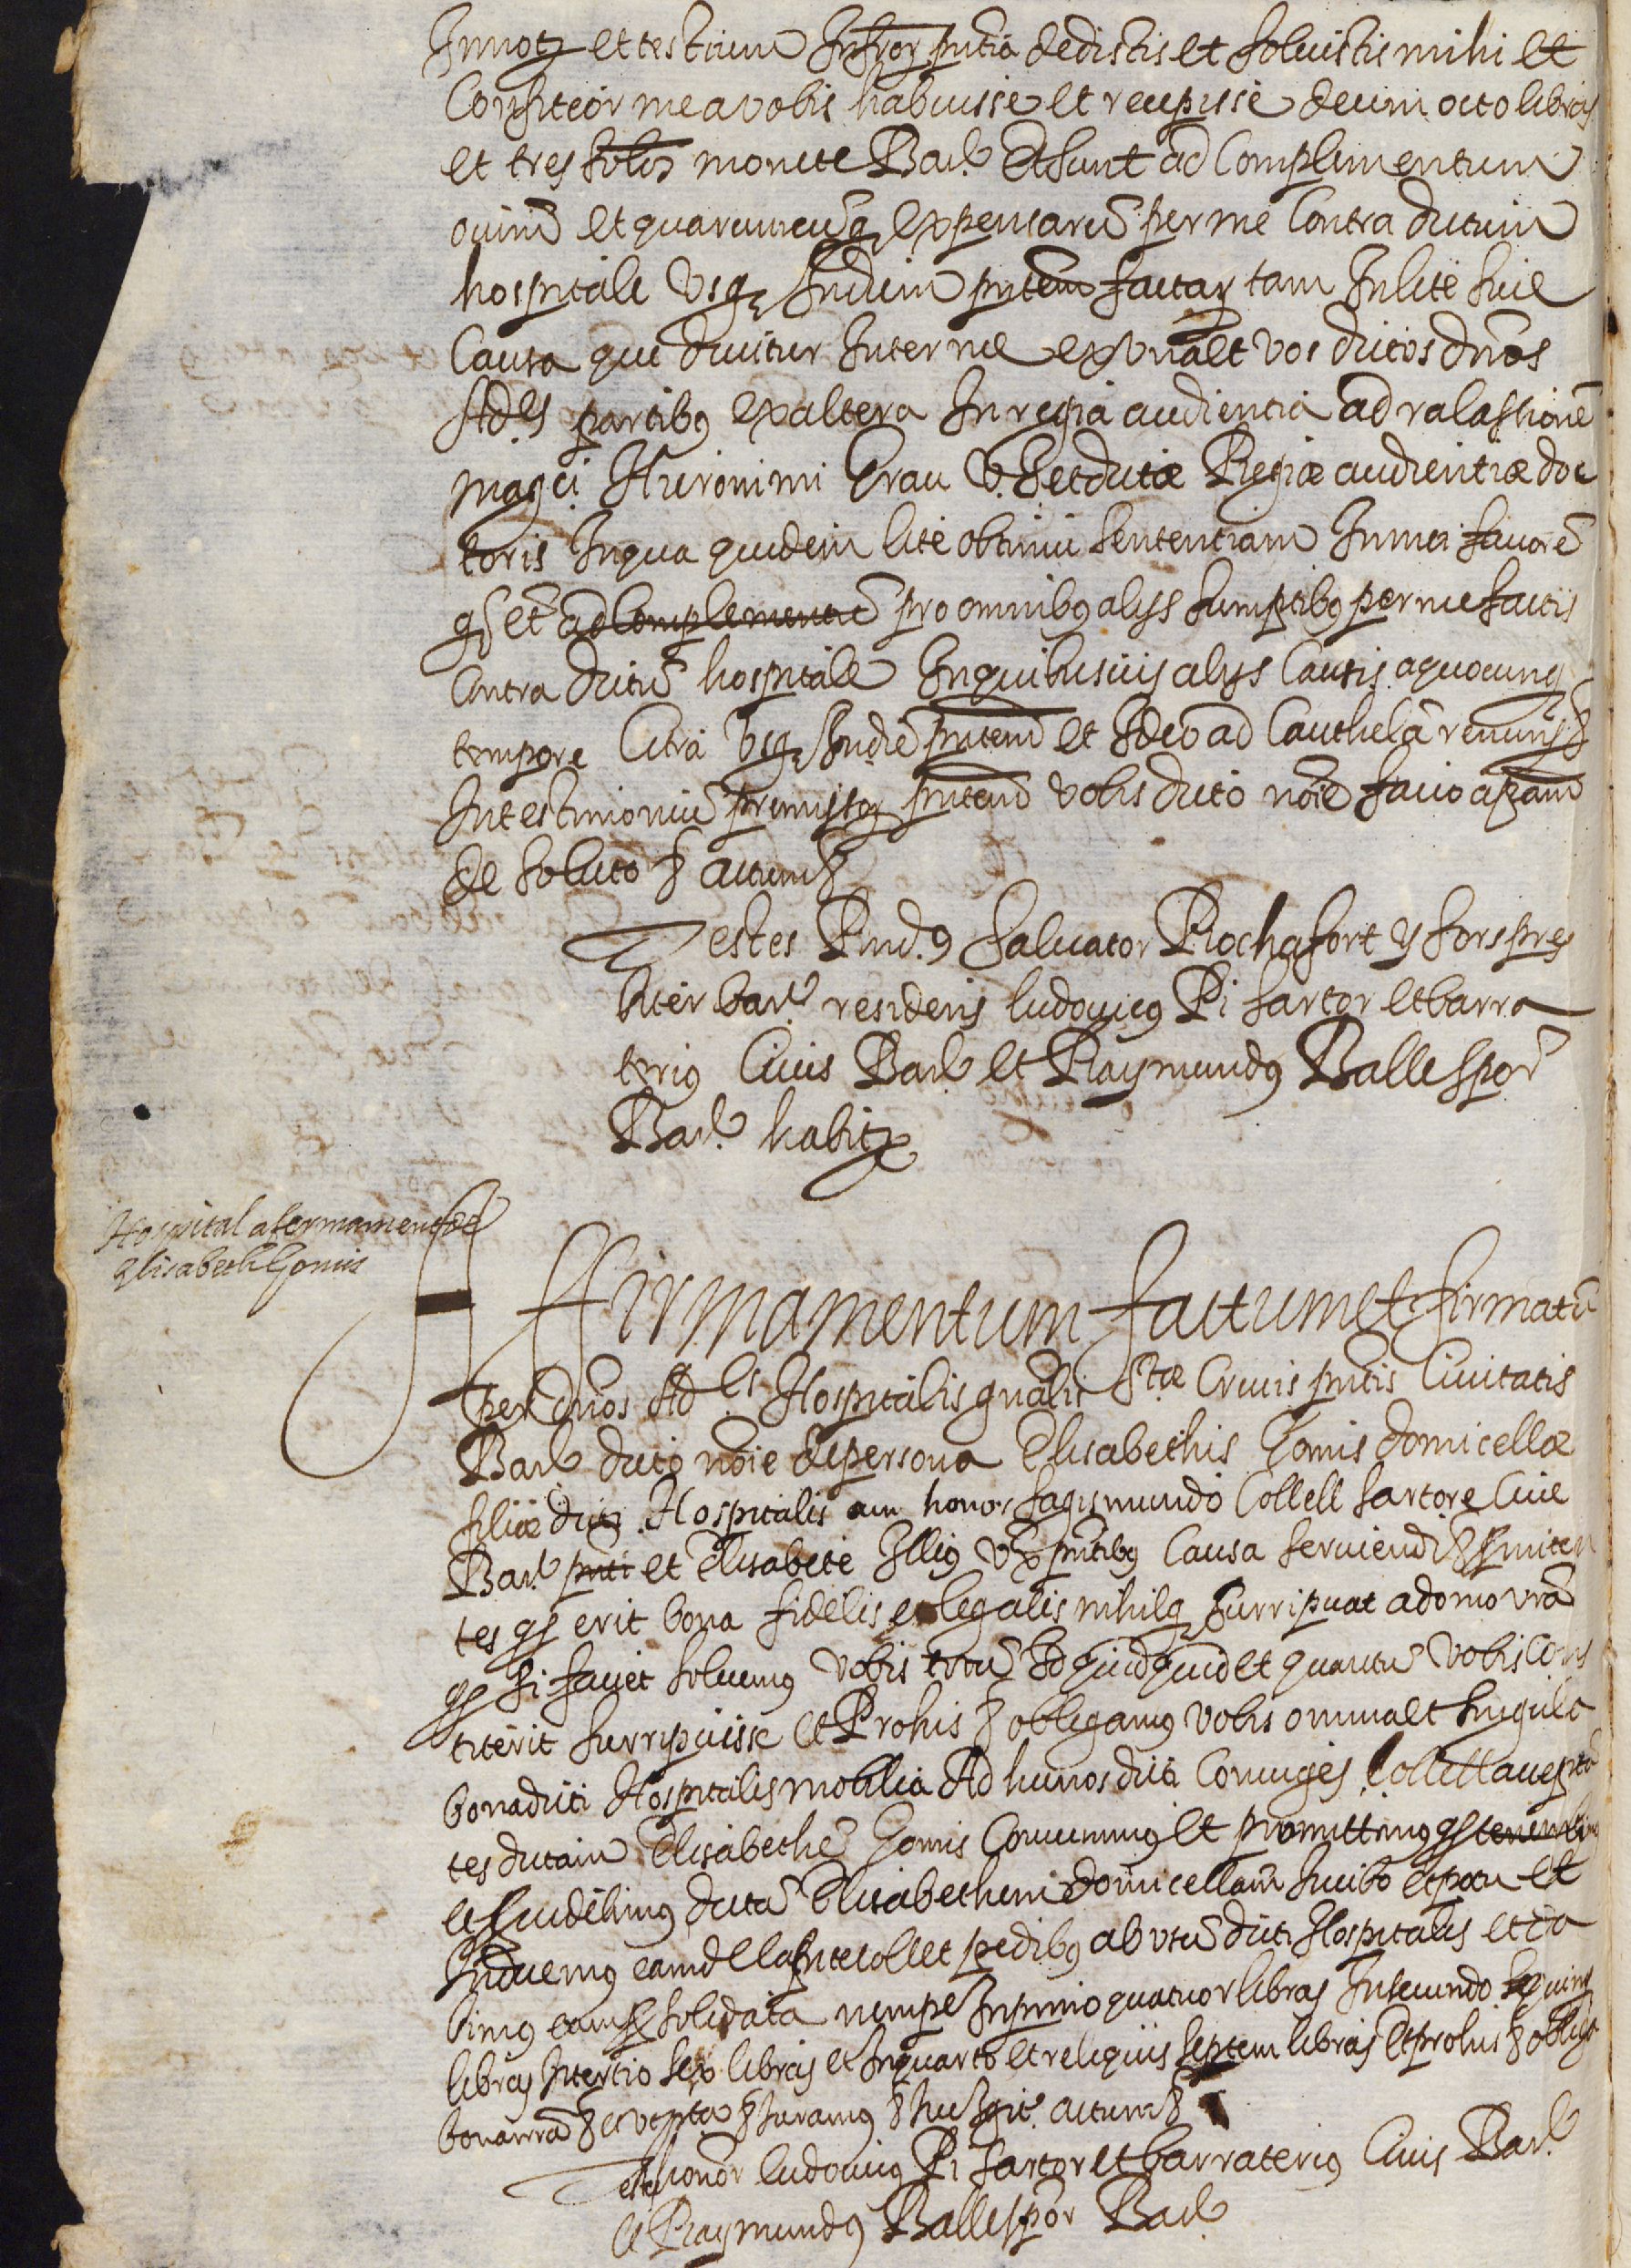 et testium dedistis et soluistis mihi et
Confiteor me a vobis habuisse et recepisse decim octo libras
et tres solos monete Bar.ᵉ Et sunt ad Complimentum
oium et quarumcuq expensaru per me Contra dictum
hospitale Usq Indiem pntem factar tam In lite siue
Causa que ducitur Inter me ex vna et vos dictos dnos
Ad.es partibq ex altera In regia audientia ad ralassione
mag.ci Hieronimi Grau Regiæ audientiæ doc
toris In qua quidem lite obtinui sententiam In mei fauore
qs et ad complementu pro omnibq alijs sumptibq per me factis
Contra dictu hospitale In quibusuis alijs Causis a quocunq
tempore Citra usq Indie pntem et Ideo ad Cauthela renun &
In testimoniu premissor pntem vobis dicto noie facio apam
de soluto & actum &
Testes Rnd.9 Saluator Rochafort
biter bar.e residens ludouicq Pi sartor et barra
teriq Ciuis Bar.e et Raymundq Balle spor
Bar.e habit

Hospital afermament de
Elisabeth Gomis

Affirmamentum factum et firmatu
per dnos Ad.es Hospitalis gnalis Stæ Crucis pntis Ciuitatis
Bar.e dicto noie de persona Elisabethis Gomis domicellæ
filiæ dicti Hospitalis cum honor Sagismundo Collell sartore Ciue
Bar.e pnti et Elisabete Illiq vx pntibq Causa seruiendi &
tes qs erit bona fidelis et legalis nihilq surripuat a domo vra
qs si faciet soluemq vobis totu Id quidquid et quantu vobis Cons
titerit surripuisse Et Pro his & obligamq vobis omnia et singula
bona dicti Hospitalis mobilia Ad hec nos dicti Coniuges Collell acceptan
tes dictam Elisabethe Gomis Conuenimq et promittimq qs tenembimq
dicta Elisabethem domicellam In cibo et potu et
Induemq eam de pedibq ab vtu dicti Hospitalis et da
bimq eam solidata nempe In primo quatuor libras In secundo quinq
libras In tertio sex libras et In quarto et reliquis septem libras Et pro his & obliga
bona nra & Juramq & actum &
Testes honor ludouicq Pi sartor et barrateriq Ciuis Bar.e
et Raymundq Balle spor Bar.e